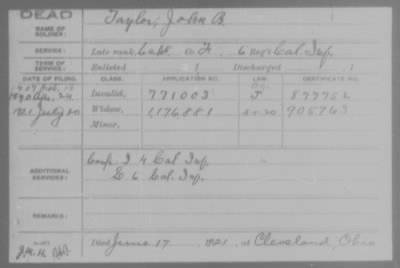 DEAD
NAME OF SOLDIER: Taylor, John B.
SERVICE: Late rank, Capt. Co. F, 6 Reg't Cal. Inf.
TERM OF SERVICE: Enlisted 1 Discharged , 1
DATE OF FILING. CLASS. APPLICATION NO. LAW. CERTIFICATE NO.
1890 Apr. 24 Invalid, 771003 J 877752
1921 July 20 Widow, 1,176,881 905763
Minor,
ADDITIONAL SERVICES: Comp. I 4 Cal. Inf.
E. 6 Cal. Inf.
REMARKS:
Died June 17 1921, at Cleveland, Ohio